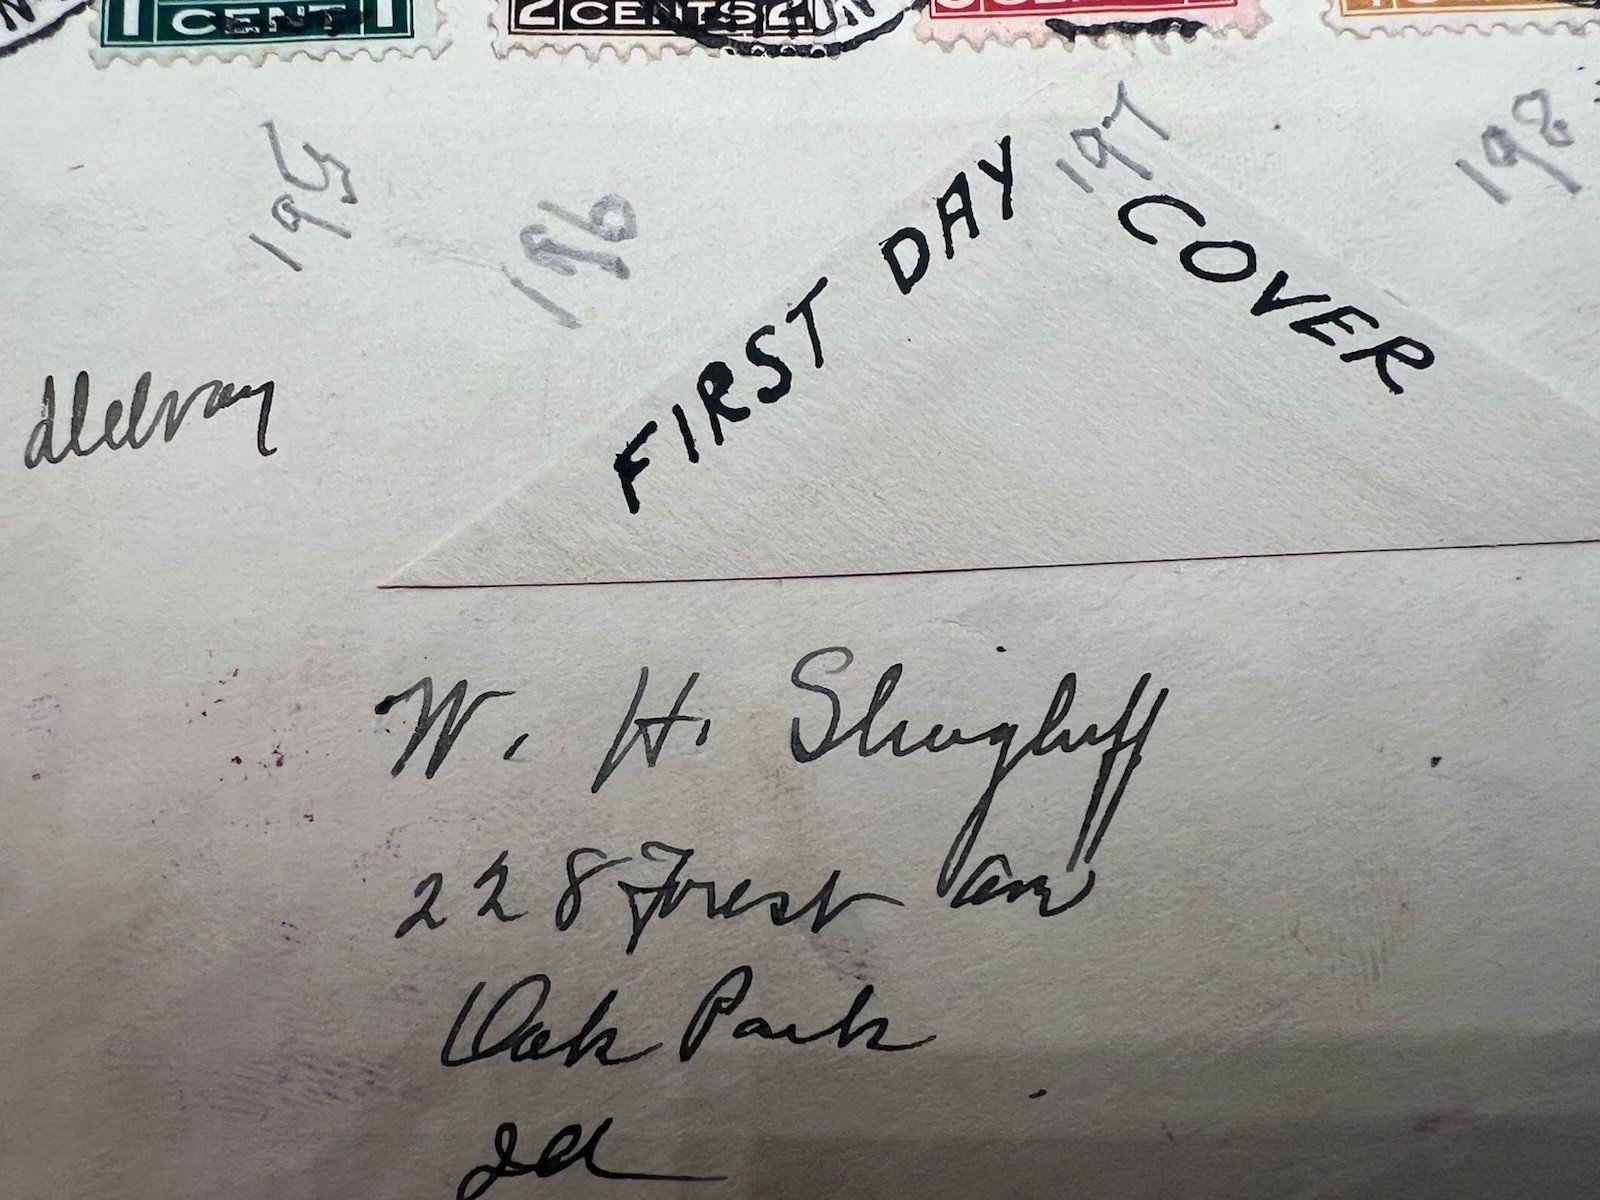 1 CENT 1
2 CENTS 2
195
196
197
198
FIRST DAY COVER
W. H. Shugluff
228 Forest Ave
Oak Park
Ill